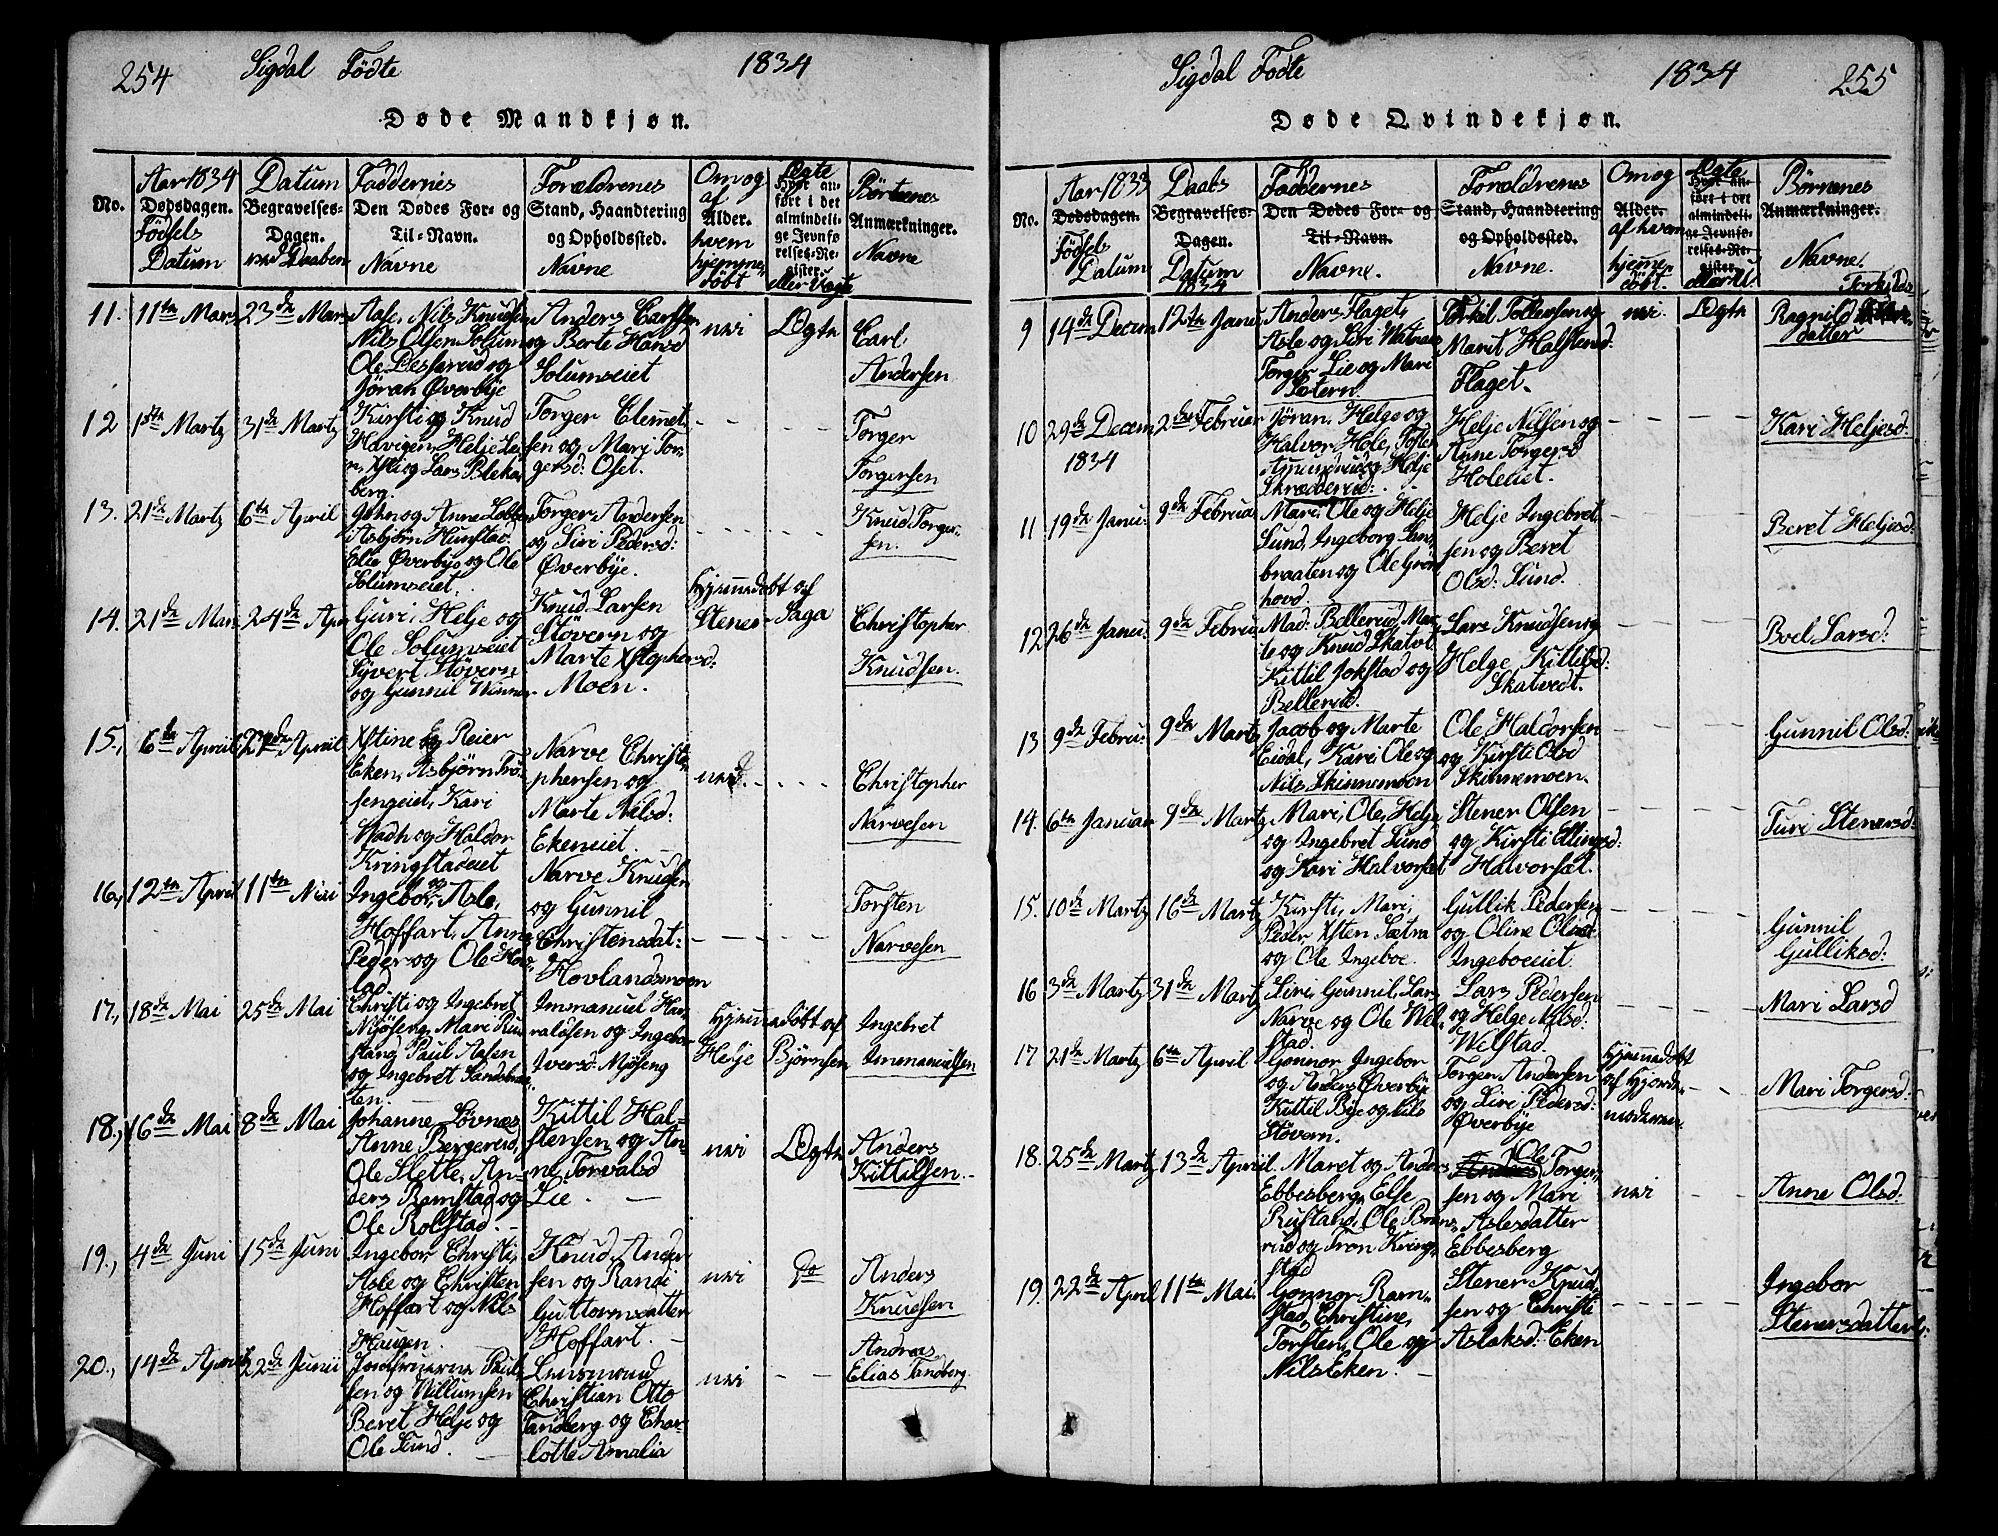 254 Sigdal Födte 1834
Døde Mandkjøn.
No.
Aar 1834
Dødsdagen.
Födsels
Datum
Datum
Begravelses-
Dagen.
Faddernes
Den Dødes For- og
Til-Navn.
Navne
Forældrenes
Stand, Haandtering
og Opholdssted.
Navne
Om og
af
Alder.
hvem
hjemme-
döbt
Ægte
Hvor an-
ført i det
almindeli-
ge Jevnfø-
relses-Re-
gister.
eller Uægte
Börnenes
Anmærkninger.
Navne
11. 11te Mars 23de Mars
Aase, Nils Knudsen
Nils Olsen Solum
Ole
og
Jöran Överbye
Anders Carlsen
og Berte
Solumseiet
nei
Ægte
Carl
Andersen
12 1ste Martz 31de Martz
Kirsti og Knud
Havigen, Helje
Xsti og Lars Bleka
berg.
Torger Clemet
sen og Mari Tor
gersd: Oset.
Torger
Torgersen
13. 21de Martz 6te April
John og Anne
Asbjörn
Elie Överbye og Ole
Solumseiet.
Torger Andersen
og Siri Pedersd:
Överbye.
Knud Torger-
sen.
14. 21de Mars 24de Apr
Guri, Helje og
Ole Solumseiet
Syvert Stövern
og Gunnil
Knud Larsen
Stövern og
Marte Xstophersd:
Moen.
Hjemmedöbt af
Stener Saga
Christopher
Knudsen.
15., 6te April 27de April
Xstine og Reier
Eken, Asbjörn Frö-
sengeiet, Kari
Wadh og Haldor
Kringstadeiet
Narve Christo-
phersen og
Marte Nilsd:
Ekeneiet.
nei
Christopher
Narvesen
16., 12te April 11te Mai
Ingebor og Asle,
Hoffart, Anne
Peder og Ole
Narve Knudsen
og Gunnil
Christensdat:
Hovlandsmoen
Torsten
Narvesen
17., 18de Mai 25de Mai
Christi og Ingebret
Nyöseng, Mari Ru-
stand, Paul Aasen
og Ingebret Sandsbraa-
ten.
Immanuel Har-
raldsen og Ingebor
Iversd: Nyöseng
Hjemmedöbt af
Helje Björnsen
Ingebret
Immanuelsen
18., 16de Mai 8de Mai
Johanne Lövnæs
Anne Bergerud,
Ole Slette, An-
ders Ramstad og
Ole Rolstad.
Kittil Hal-
stensen og An-
ne Torvalsd
Lie.
nei
Ægte
Anders
Kittilsen.
19., 4de Juni 15de Juni
Ingebor, Christi,
Asle og Christen
Hoffart og Nils
Haugen.
Knud Ander
sen og Randi
Guttormsdatter
Hoffart.
nei
Do
Anders
Knudsen
20., 14de April 22de Junii
Jomfruerne Paul
sen og Villumsen
Beret Helje og
Ole Lund.
Lensmand
Christian Otto
Tandberg og Char-
lotte Amalia
nei
Andreas
Elias Tandberg.
Sigdal Födte 1834 255
Døde Qvindekjøn.
No.
Aar 1833
Dødsdagen.
Födsels
Datum
Daabs
Begravelses-
Dagen.
Datum
1834
Faddernes
Den Dødes For- og
Til-Navn.
Navne.
Forældrenes
Stand, Haandtering
og Opholdssted.
Navne.
Om og
Alder.
af hvem
hjemme-
döbt.
Ægte
Hvor an-
ført i det
almindeli-
ge Jevnfø-
relses-Re-
gister.
Börnenes
Anmærkninger.
Navne.
9 14de Decem 12te Janu
Anders Flaget,
Asle og Siri
Torger Lie og Mari
Torkil Tollefsen og
Marit Halstensd:
Flaget.
nei
Ægte
Torkilds
Ragnild
datter
10 29de Decem 2den Februar
1834
Jöran, Helge og
Halvor Hole, Tosten
og Helje
Skredderud:
Helje Nilsen og
Anne Torgersd
Holeiet.
Kari Heljesd:
11 19de Janu: 9de Februa
Mari, Ole og Helje
Lund, Ingeborg San-
braaten og Ole Grön
hovd.
Helje Ingebret
sen og Beret
Olsd: Lund.
Beret Heljesd:
12 26de Janu: 9de Febru
Mad: Bellerud, Mar-
te og Knud Skatvet
Kittil Jokstad og
Bellerud.
Lars Knudsen og
Helge Kittilsd:
Skatvedt.
Boel Larsd:
13 9de Febru: 9de Martz
Jacob og Marte
Eidal, Kari, Ole og
Nils Skinnemoen
Ole Haldorsen
og Kirsti Olsd
Skinnemoen.
Gunnil Olsd:
14. 6te Januar 9de Martz
Mari, Ole, Helje
og Ingebret Lund
og Kari Halvorsæt
Stener Olsen
og Kirsti Ellingsd:
Halvorsæt.
Turi Stenersd:
15. 10de Martz 16de Martz
Kirsti, Mari,
Peder Xsten Sætra
og Ole Ingeboe.
Gullik Pedersen
og Oline Olsd:
Ingeboeiet.
Gunnil
Gulliksd:
16 3de Martz 31de Martz
Siri, Gunnil, Lars
Narve og Ole Wel-
stad.
Lars Pedersen
og Helge Nilsd:
Welstad.
Mari Larsd
17 21de Martz 6te April
Gonnor, Ingebor
og Anders Överbye
Kittil Bye og Nils
Stövern.
Torger Andersen
og Siri Pedersd:
Överbye
Hjemmedöbt
af Hjorde-
moderen
Mari Torgersd:
18. 25de Martz 13de April.
Maret og Anders
Ebbesberg, Else
Rustand, Ole
rud og Tron Kring-
stad
Anders Ole Torger-
sen og Mari
Aslesdatter
Ebbesberg
nei
Anne Olsd:
19. 22de April 11te Mai.
Gonnor Ram-
stad, Christine,
Torsten, Ole og
Nils Eken.
Stener Knud
sen og Christi
Aslaksd: Eken
Ingebor
Stenersdatter